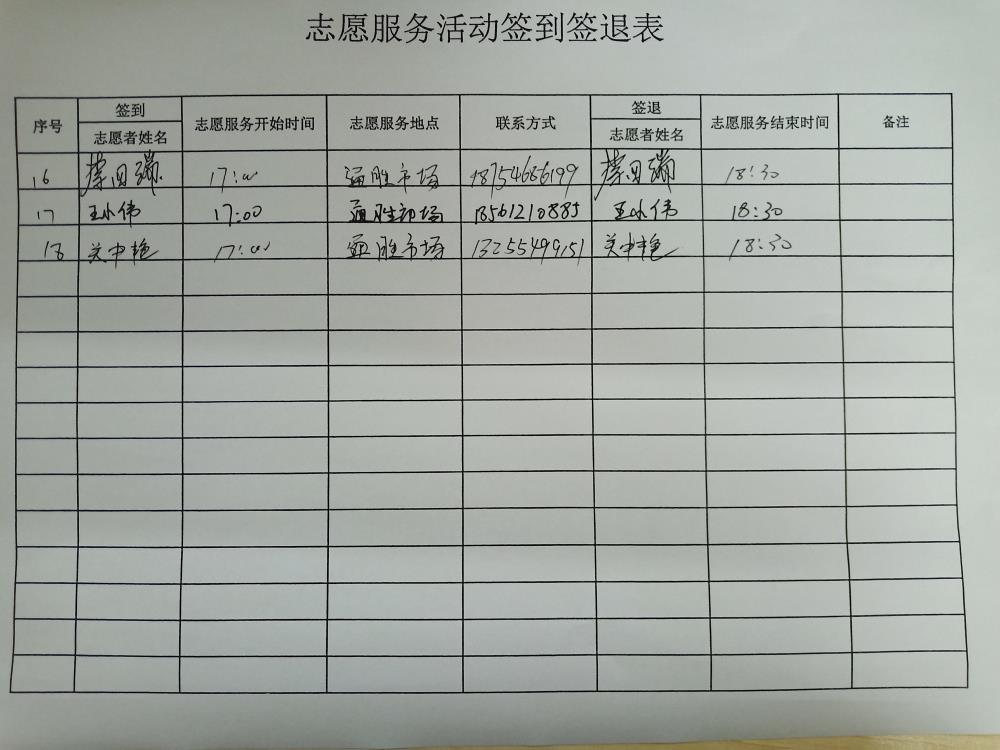 志愿服务活动签到签退表
序号 签到 志愿者姓名 志愿服务开始时间 志愿服务地点 联系方式 签退 志愿者姓名 志愿服务结束时间 备注
16 17:00 通胜市场 18754686199 18:30
17 王小伟 17:00 通胜市场 18561210885 王小伟 18:30
18 关中艳 17:00 通胜市场 13255499151 关中艳 18:30